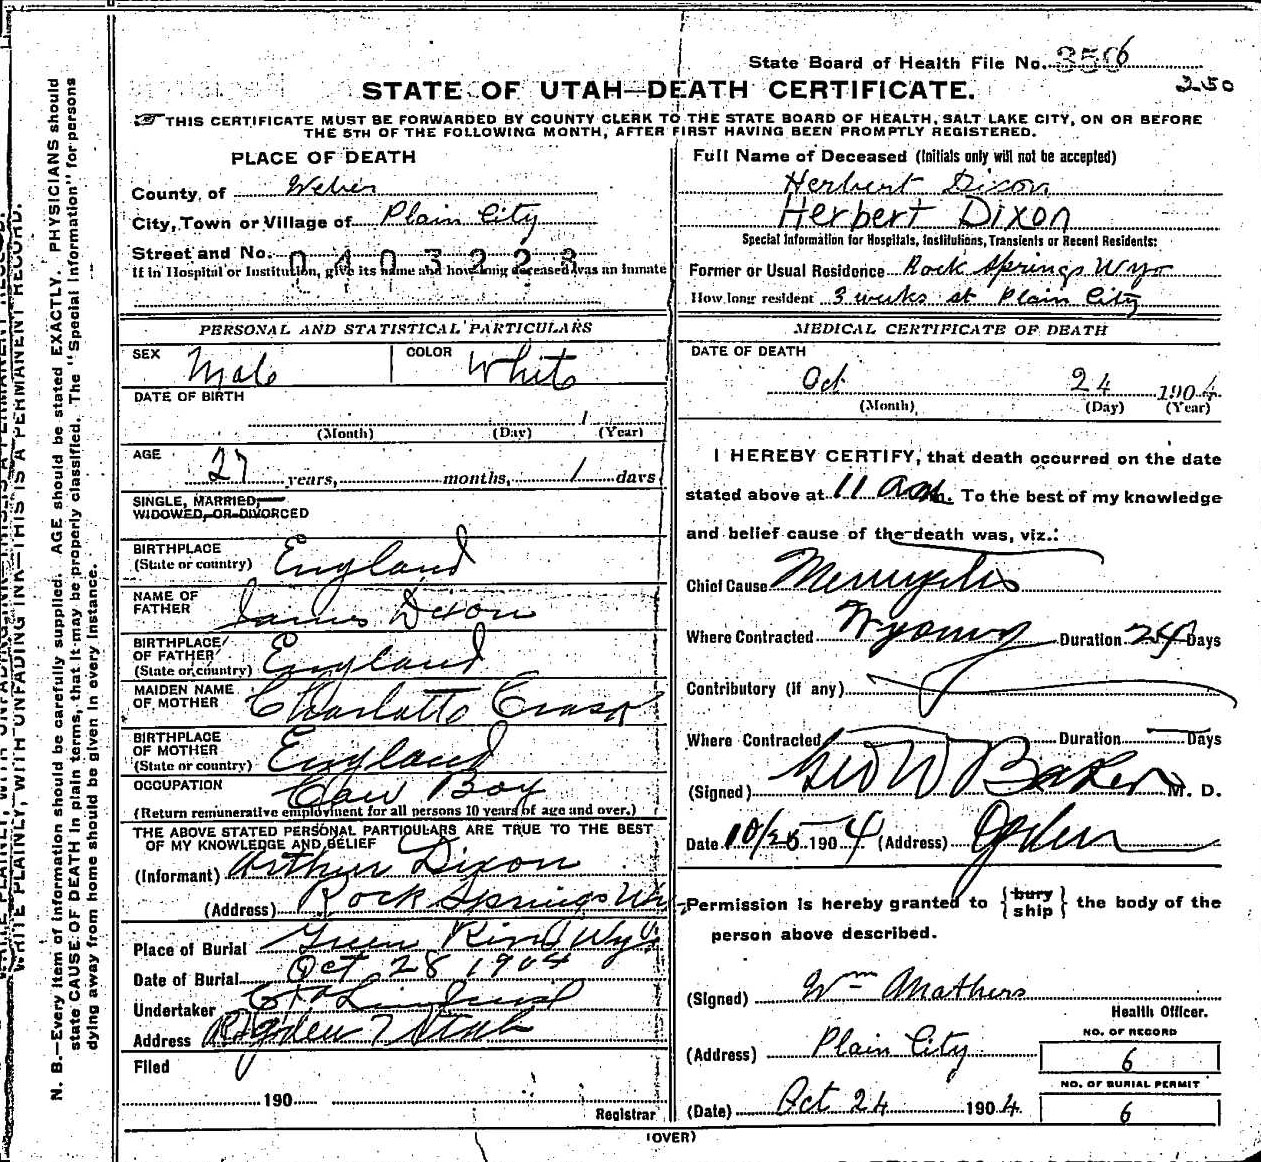 State Board of Health File No. 3506
250
STATE OF UTAH—DEATH CERTIFICATE.
THIS CERTIFICATE MUST BE FORWARDED BY COUNTY CLERK TO THE STATE BOARD OF HEALTH, SALT LAKE CITY, ON OR BEFORE
THE 5TH OF THE FOLLOWING MONTH, AFTER FIRST HAVING BEEN PROMPTLY REGISTERED.
N. B.—Every item of information should be carefully supplied. AGE should be stated EXACTLY. PHYSICIANS should
state CAUSE OF DEATH in plain terms, that it may be properly classified. The "Special Information" for persons
dying away from home should be given in every instance.
WRITE PLAINLY, WITH UNFADING INK—THIS IS A PERMANENT RECORD.
PLACE OF DEATH
County of Weber
City, Town or Village of Plain City
Street and No. 0403228
If in Hospital or Institution, give its name and how long deceased was an inmate
PERSONAL AND STATISTICAL PARTICULARS
SEX Male COLOR White
DATE OF BIRTH
1
(Month) (Day) (Year)
AGE
27 years, months, 1 days
SINGLE, MARRIED,
WIDOWED, OR DIVORCED
BIRTHPLACE
(State or country) England
NAME OF
FATHER James Dixon
BIRTHPLACE
OF FATHER
(State or country) England
MAIDEN NAME
OF MOTHER Charlotte
BIRTHPLACE
OF MOTHER
(State or country) England
OCCUPATION Cow Boy
(Return remunerative employment for all persons 10 years of age and over.)
THE ABOVE STATED PERSONAL PARTICULARS ARE TRUE TO THE BEST
OF MY KNOWLEDGE AND BELIEF
(Informant) Arthur Dixon
(Address) Rock Springs Wy
Place of Burial Green Wyo
Date of Burial Oct 28 1904
Undertaker
Address Ogden Utah
Filed
190
Registrar
Full Name of Deceased (Initials only will not be accepted)
Herbert Dixon
Herbert Dixon
Special Information for Hospitals, Institutions, Transients or Recent Residents:
Former or Usual Residence Rock Springs Wyo
How long resident 3 weeks at Plain City
MEDICAL CERTIFICATE OF DEATH
DATE OF DEATH
Oct 24 1904
(Month) (Day) (Year)
I HEREBY CERTIFY, that death occurred on the date
stated above at 11 a m. To the best of my knowledge
and belief cause of the death was, viz.:
Chief Cause
Where Contracted Wyoming Duration 24 Days
Contributory (if any)
Where Contracted Duration Days
(Signed) Geo W Baker M. D.
Date 10/25 1904 (Address) Ogden
Permission is hereby granted to {bury
ship} the body of the
person above described.
(Signed) Wm Mathers
Health Officer.
NO. OF RECORD
(Address) Plain City 6
NO. OF BURIAL PERMIT
(Date) Oct 24 1904 6
(OVER)